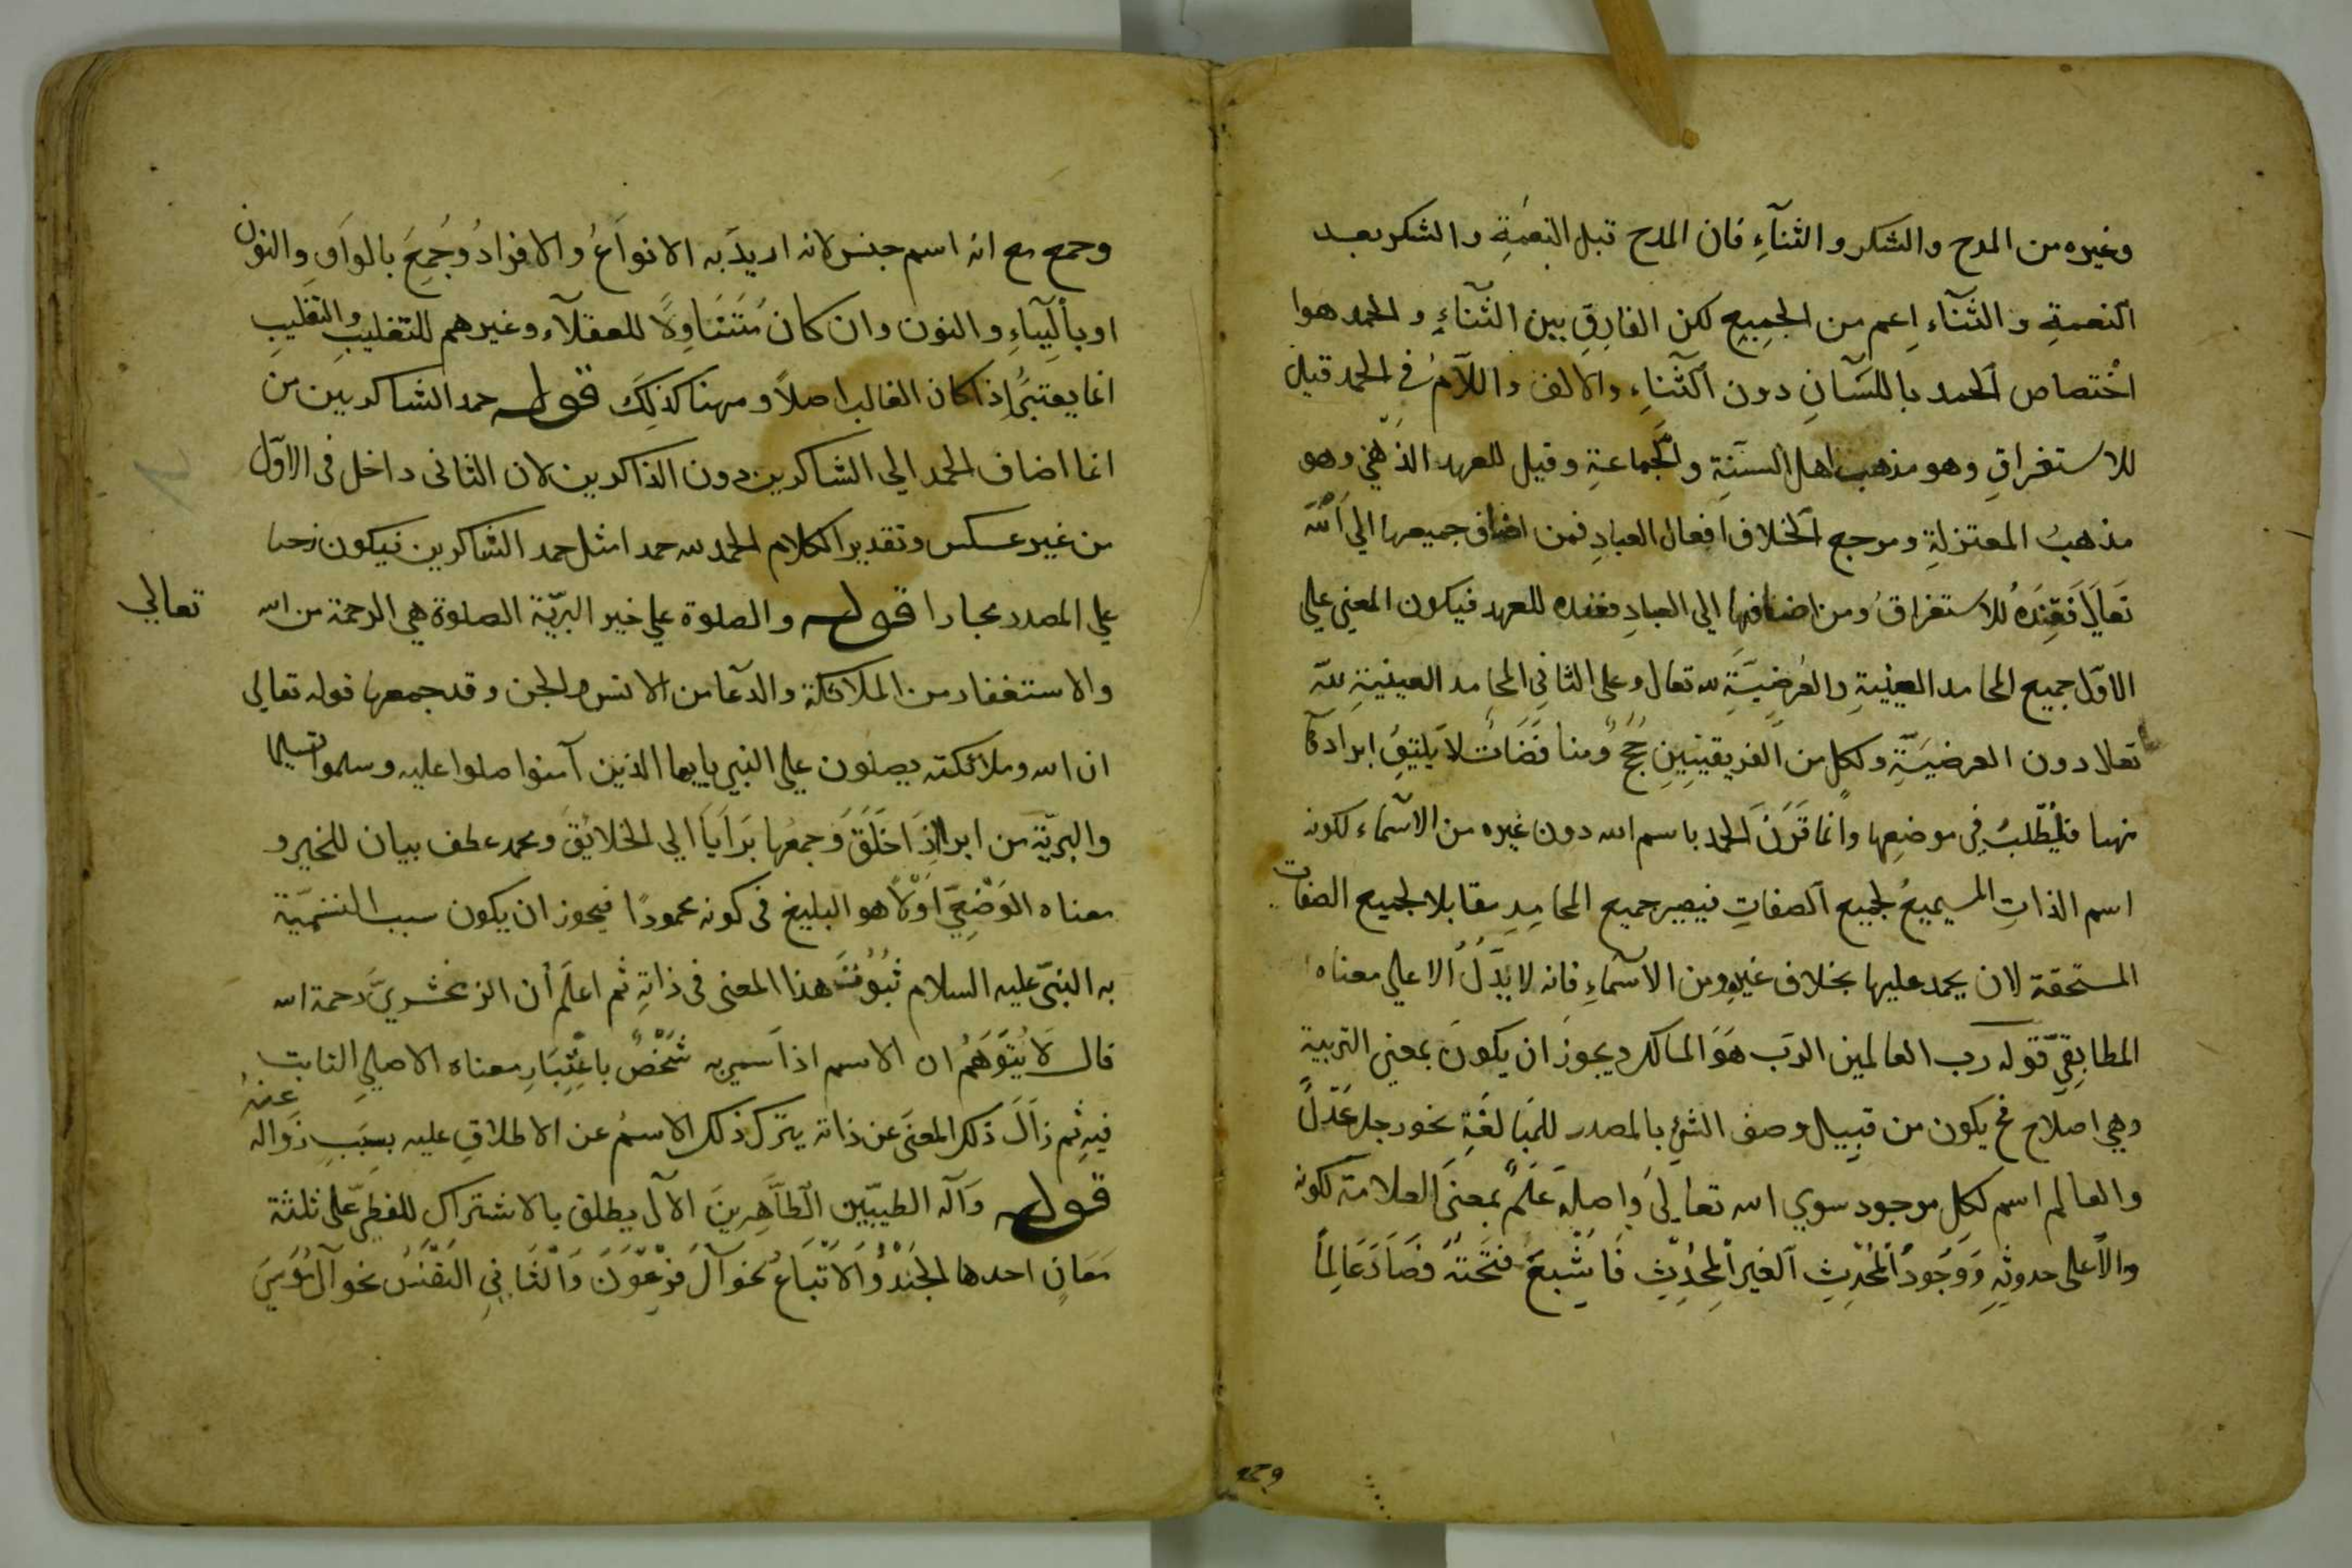 وغيره من المدح والشكر والثنآءِ فان المدح قبل النعمةِ والشكر بعد
النعمةِ والثنآء اعم من الجميع لكن الفارق بين الثنآءِ والحمد هوا
اختصاص الحمد باللسانِ دون الثناءِ والالف واللآم في الحمد قيل
للاستغراقِ وهو مذهب اهل السنةِ والجماعةِ وقيل للعهد الذهني وهو
مذهبُ المعتزلةِ ومرجع الخلاف افعال العبادِ فمن اضاف جميعها الي الله
تعالي فعنده للاستغراق ومن اضافها الي العبادِ فعنده للعهد فيكون المعني علي
الاوّل جميع المحامد العينيةِ والعرضيّةِ لله تعال وعلى الثاني المحامد العينيةِ لله
تعلا دون العرضيّةِ ولكل من الفريقين حججٌ ومناقضاتٌ لا يليق ايرادها
ههنا فليطلب في موضعها وانما قرن الحمد باسم الله دون غيره من الاسماء لكونه
اسم الذاتِ المسـجمع لجميع الصفاتِ فيصير جميع المحامدِ مقابلا لجميع الصفات
المستحقة لان يحمد عليها بخلاف غيره من الاسمآءِ فانه لا يدل الا علي معناه
المطابقي قوله رب العالمين الرب هو المالك ويجوز ان يكون بمعني التربية
وهي اصلاح فح يكون من قبيل وصف الشئ بالمصدر للمبالغةِ نحو رجل عدلً
والعالم اسم لكل موجود سوي الله تعالي واصله علم بمعني العلامة لكونه
والاعلى حدوثه ووجود المحدث الغير المحدث فاشبع فتحته فصار عالماً
وجمع
وجمع مع انه اسم جنس لانه اريد به الانواع والافراد وجُمِعَ بالواو والنون
او بالياءِ والنون وان كان متناولاً للعقلآء وغيرهم للتغليب والتغليب
انما يعتبر اذا كان الغالب اصلاً وههنا كذلك قوله حمد الشاكرين من
انما اضاف الحمد الي الشاكرين دون الذاكرين لان الثانى داخل فى الاوّل
من غير عكس وتقدير الكلام الحمد لله حمدا مثل حمد الشاكرين فيكون نصبا
علي المصدر مجازا قوله والصلوة علي خير البريّة الصلوة هي الرحمة من الله تعالي
والاستغفار من الملائكة والدعا من الانس والجن وقد جمعها قوله تعالي
ان الله وملائكته يصلون علي النبي يايها الذين آمنوا صلوا عليه وسلموا تسليما
والبريّة من ابرا اذا خلق وجمعها برايا الي الخلايق ومحمد عطف بيان للخير و
معناه الوضعي اولا هو البليغ فى كونه محمودًا فيجوز ان يكون سبب التسميّة
به النبيّ عليه السلام ثبوت هذا المعنى فى ذاتهِ ثم اعلم أن الزمخشريّ رحمة الله
قال لا يتوهم ان الاسم اذا سمي به شخصٌ باعتبارِ معناه الاصلي الثابت
فيه ثم زال ذلك المعنى عن ذاته يترك ذلك الاسم عن الاطلاق عليه بسبب زواله عنه
قوله وآله الطيّبين الطاهرين الآل يطلق بالاشتراك اللفظيّ على ثلثة
معانٍ احدها الجند والاتباع نحو آل فرعون والثاني النفس نحو آل موسي